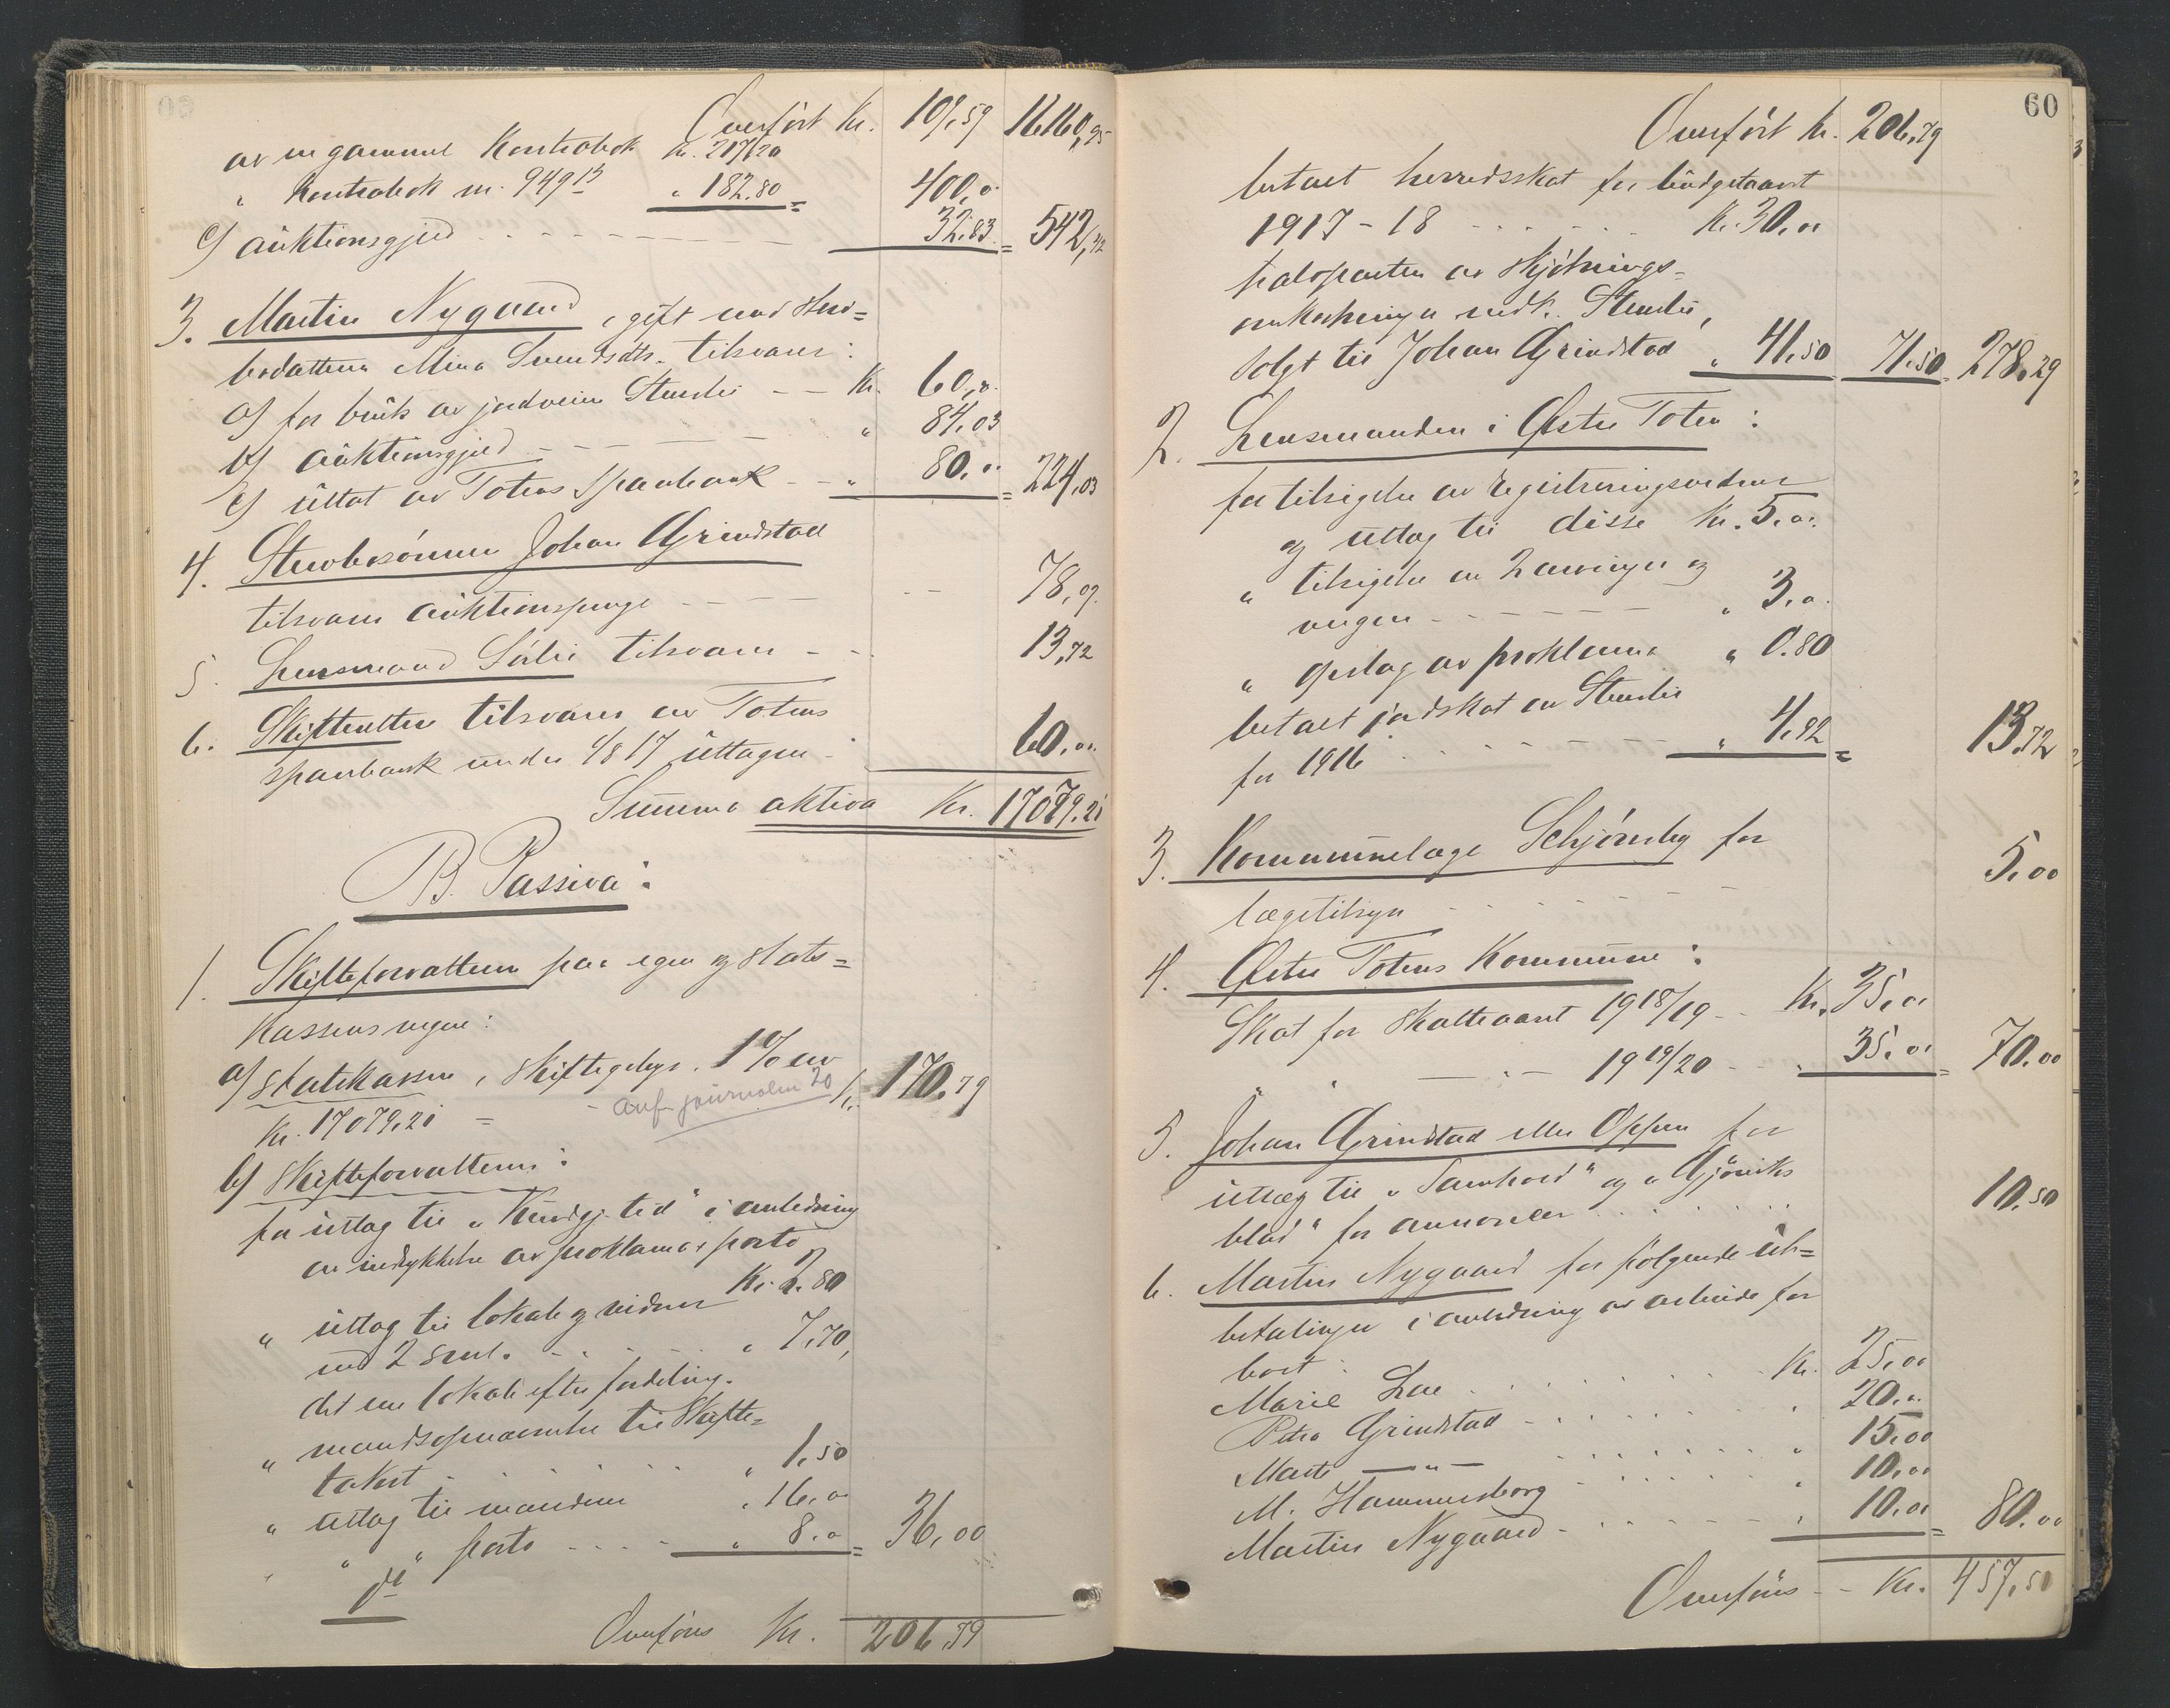 Overført Kr. 109,59 16160,95
av en gammel Kontrabok Kr. 217,20
" Kontrabok nr. 949 13 " 182.80 = 400,0
c) auktionsgjæld 32.83 = 542,42
3. Martin Nygaard, gift med Stervbodatteren Mina Svendsdtr. tilsvarer:
a) for bruk av jordveien Stenslie Kr. 60,0
b) auktionsgjæld " 84,03
c) uttat av Totens Sparebank " 80,00 = 224,03
4. Stervbosønnen Johan Grindstad
tilsvarer auktionspenge 78,09
5. Lensmand Sørlie tilsvarer 13,72
6. Skifteretten tilsvarer av Totens
sparebank under 4/8 17 uttagne 60,00
Summa aktiva Kr. 17079.21
B. Passiva:
1. Skifteforvalteren paa egne og Stats=
kassens vegne:
a) Statskassen, Skiftegebyr 1% av
Kr. 17079,21 = Kr. 170,79
anf. journalen 20
b) Skifteforvalteren:
for utlæg til "Kundgj. tid" i anledning
av indrykkelse av proklama + porto
Kr. 2.80
" utlæg til lokale og vidner
ved 2 saml. " 7,70
det ene lokale efter fordeling.
" mandsopnævnelse til Skifte=
takst " 1,50
" utlæg til mændene " 16,00
" " porto " 8,0 = 36,00
Overføres Kr. 206,79
60
Overført kr. 206,79
betalt herredsskat for budgetaaret
1917-18 Kr. 30,00
halvparten av Skjøtnings=
omkostninger vedk. Stenslie,
solgt til Johan Grindstad " 41,50 71.50 = 278,29
2. Lensmanden i Østre Toten:
for tilsigelse av registreringsvidner
og utlæg til disse Kr. 5,00
" tilsigelse av 2 arvinger og
vergen " 3,0
" opslag av proklama " 0.80
betalt jordskat av Stenslie
for 1916 " 4,92 = 13,72
3. Kommunelæge Schjørnsby for
lægetilsyn 5,00
4. Østre Totens Kommune:
Skat for Skatteaaret 1918/19 Kr. 35,00
" " — " — 1919/20 " 35,00 = 70,00
5. Johan Grindstad eller Oppen for
utlæg til "Samhold" og "Gjøviks
blad" for annoncer 10,50
6. Martin Nygaard for følgende ut=
betalinger i anledning av arbeide for
boet:
Marie Lae Kr. 25,00
Petra Grindstad " 20,00
Marte — " — " 15,00
M. Hammersborg " 10,00
Martin Nygaard " 10,00 = 80,00
Overføres Kr. 457,51